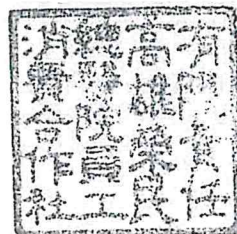 有限責任
高雄榮民
總醫院員工
消費合作社